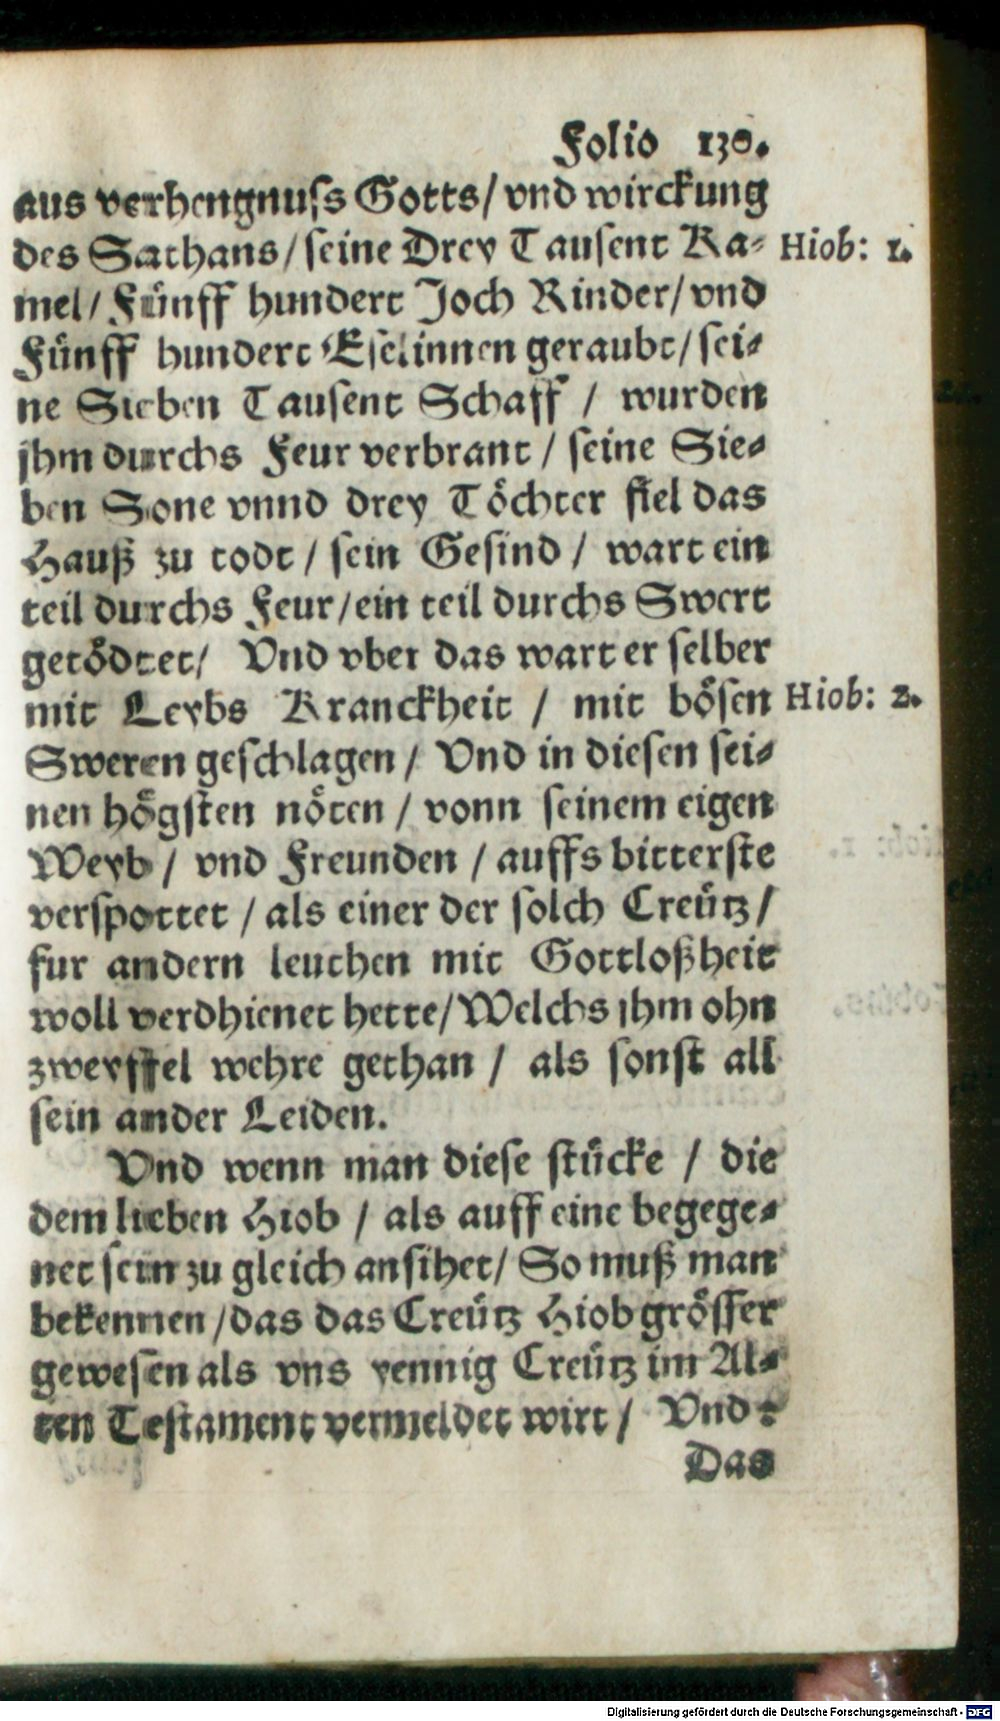 Folio 130.
aus verhengnuſs Gotts/ vnd wirckung
des Sathans/ ſeine Drey Tauſent Ka⸗
Hiob: 1.
mel/ Fünff hundert Joch Rinder/ vnd
Fünff hundert Eſelinnen geraubt/ ſei⸗
ne Sieben Tauſent Schaff / wurden
jhm durchs Feur verbrant / ſeine Sie⸗
ben Sone vnnd drey Töchter fiel das
Hauß zu todt / ſein Geſind / wart ein
teil durchs Feur/ ein teil durchs Swert
getödtet/ Vnd vber das wart er ſelber
mit Leybs Kranckheit / mit böſen
Hiob: 2.
Sweren geſchlagen / Vnd in dieſen ſei⸗
nen högſten nöten / vonn ſeinem eigen
Weyb / vnd Freunden / auffs bitterſte
verſpottet / als einer der ſolch Creütz /
fur andern leuthen mit Gottloßheit
woll verdhienet hette/ Welchs jhm ohn
zweyffel wehre gethan / als ſonſt all
ſein ander Leiden.
Vnd wenn man dieſe ſtücke / die
dem lieben Hiob / als auff eine begege⸗
net ſein zu gleich anſihet/ So muß man
bekennen / das das Creütz Hiob gröſſer
geweſen als vns yennig Creütz im Al⸗
ten Teſtament vermeldet wirt / Vnd
Das
Digitalisierung gefördert durch die Deutsche Forschungsgemeinschaft - DFG